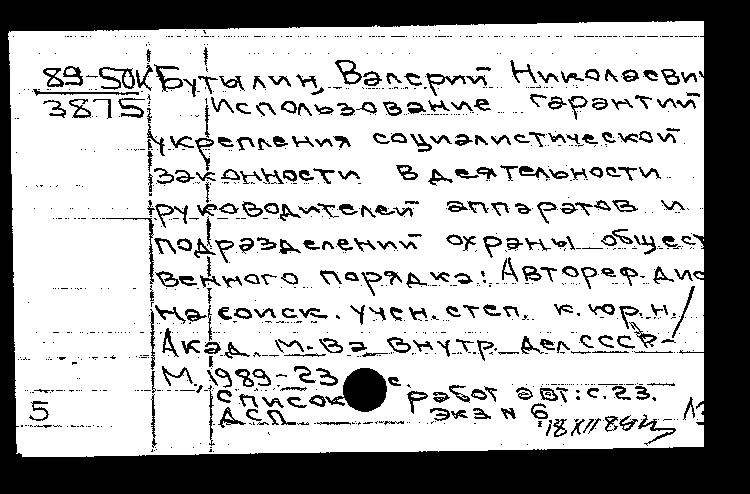 89-50К Бутылин, Валерий Николаевич
3875 Использование гарантий
укрепления социалистической
законности в деятельности
руководителей аппаратов и
подразделений охраны общест
венного порядка: Автореф. дис
на соиск. учен. степ. к. юр. н. /
Акад. М-ва внутр. дел СССР.-
М, 1989.-23 с.
список работ авт: с. 23.
5 ДСП экз N 6
18 XII 89